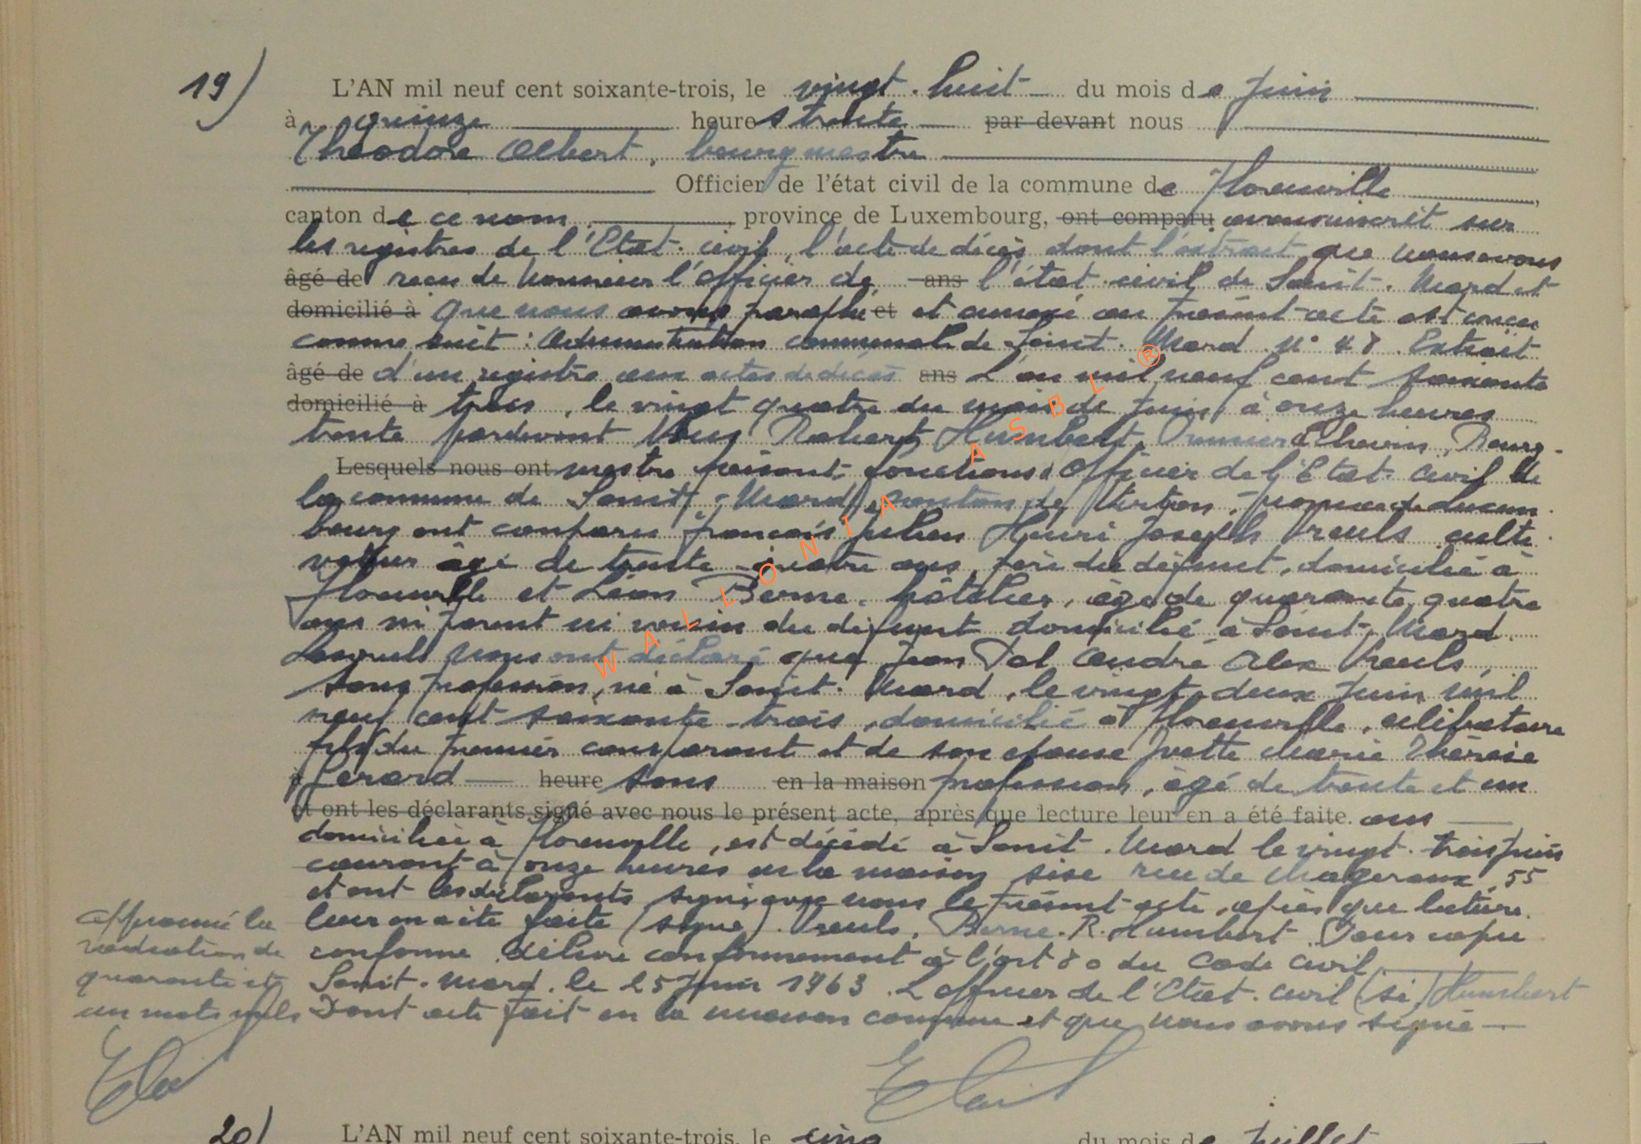 19) L'AN mil neuf cent soixante-trois, le vingt-huit du mois de Juin
à quinze heures trente par devant nous
Théodore Albert, bourgmestre
Officier de l'état civil de la commune de Florenville
canton de ce nom, province de Luxembourg, ont comparu avons inscrit sur
les registres de l'Etat-civil, l'acte de décès dont l'extrait que nous avons
âgé de reçu de Monsieur l'officier de ans l'état-civil de Saint-Mard et
domicilié à que nous avons paraphé et et annexé au présent acte est conçu
comme suit : Administration communale de Saint-Mard N° 48 Extrait
âgé de d'un registre aux actes de décès ans L'an mil neuf cent soixante
domicilié à trois, le vingt quatre du mois de Juin à onze heures
trente pardevant Nous Robert Humbert, Premier Echevin, Bourg-
Lesquels nous ont mestre faisant fonctions Officier de l'Etat-civil de
la commune de Saint-Mard, canton de Virton, province de Luxem-
bourg ont comparu François Julien Henri Joseph Vreuls culti-
vateur âgé de trente-quatre ans, père du défunt, domicilié à
Florenville et Léon Berne, hôtelier, âgé de quarante-quatre
ans ni parent ni voisin du défunt domicilié à Saint-Mard.
Lesquels nous ont déclaré que Jean Pol André Alex Vreuls,
sans profession, né à Saint-Mard, le vingt-deux Juin mil
neuf cent soixante-trois, domicilié à Florenville, célibataire
fils du premier comparant et de son épouse Yvette Marie Thérèse
à Gérard heure sans en la maison profession, âgé de trente et un
et ont les déclarants signé avec nous le présent acte, après que lecture leur en a été faite. ans
domiciliée à Florenville, est décédé à Saint-Mard le vingt-trois Juin
courant à onze heures en la maison sise rue de Mageroux, 55
et ont les déclarants signé avec nous le présent acte, après que lecture
leur en a été faite (signé). Vreuls, Berne. R. Humbert. Pour copie
conforme délivré conformément à l'art 80 du Code Civil
Saint-Mard, le 25 Juin 1963. L'officier de l'Etat-civil (sé) Humbert
Dont acte fait en la maison commune et que nous avons signé
Approuvé la
radiation de
quarante et
un mots nuls
20) L'AN mil neuf cent soixante-trois, le cinq du mois de Juillet
WALLONIA ASBL ®